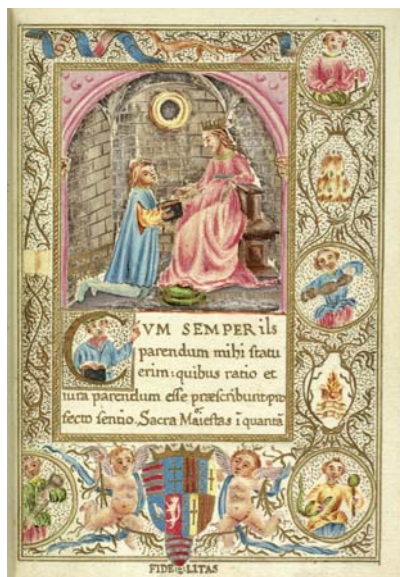 CVM SEMPER iis
parendum mihi statu
erim: quibus ratio et
iura parendum esse præscribunt: pro
fecto sentio. Sacra Maiestas ī quantā
FIDELITAS